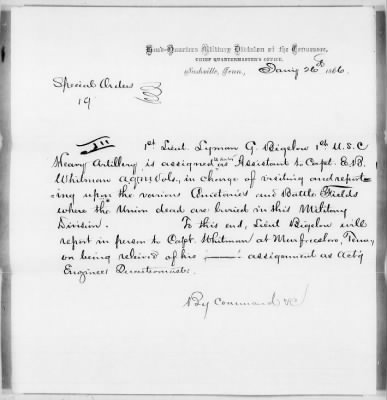 Head-Quarters Military Division of the Tennessee,
CHIEF QUARTERMASTER'S OFFICE,
Nashville, Tenn., Jany 26th 1866.
Special Orders
19
III 1st Lieut. Lyman G. Bigelow 1st U.S.C
Heavy Artillery is assigned as Assistant to Capt. E.B.
Whitman AQM Vols, in charge of visiting and report-
ing upon the various Cemeteries and Battle Fields
where the Union dead are buried in this Military
Division. To this end, Lieut Bigelow will
report in person to Capt. Whitman at Murfreesboro, Tenn,
on being relieved of his assignment as Act'g
Engineer Quartermaster.
By Command &c